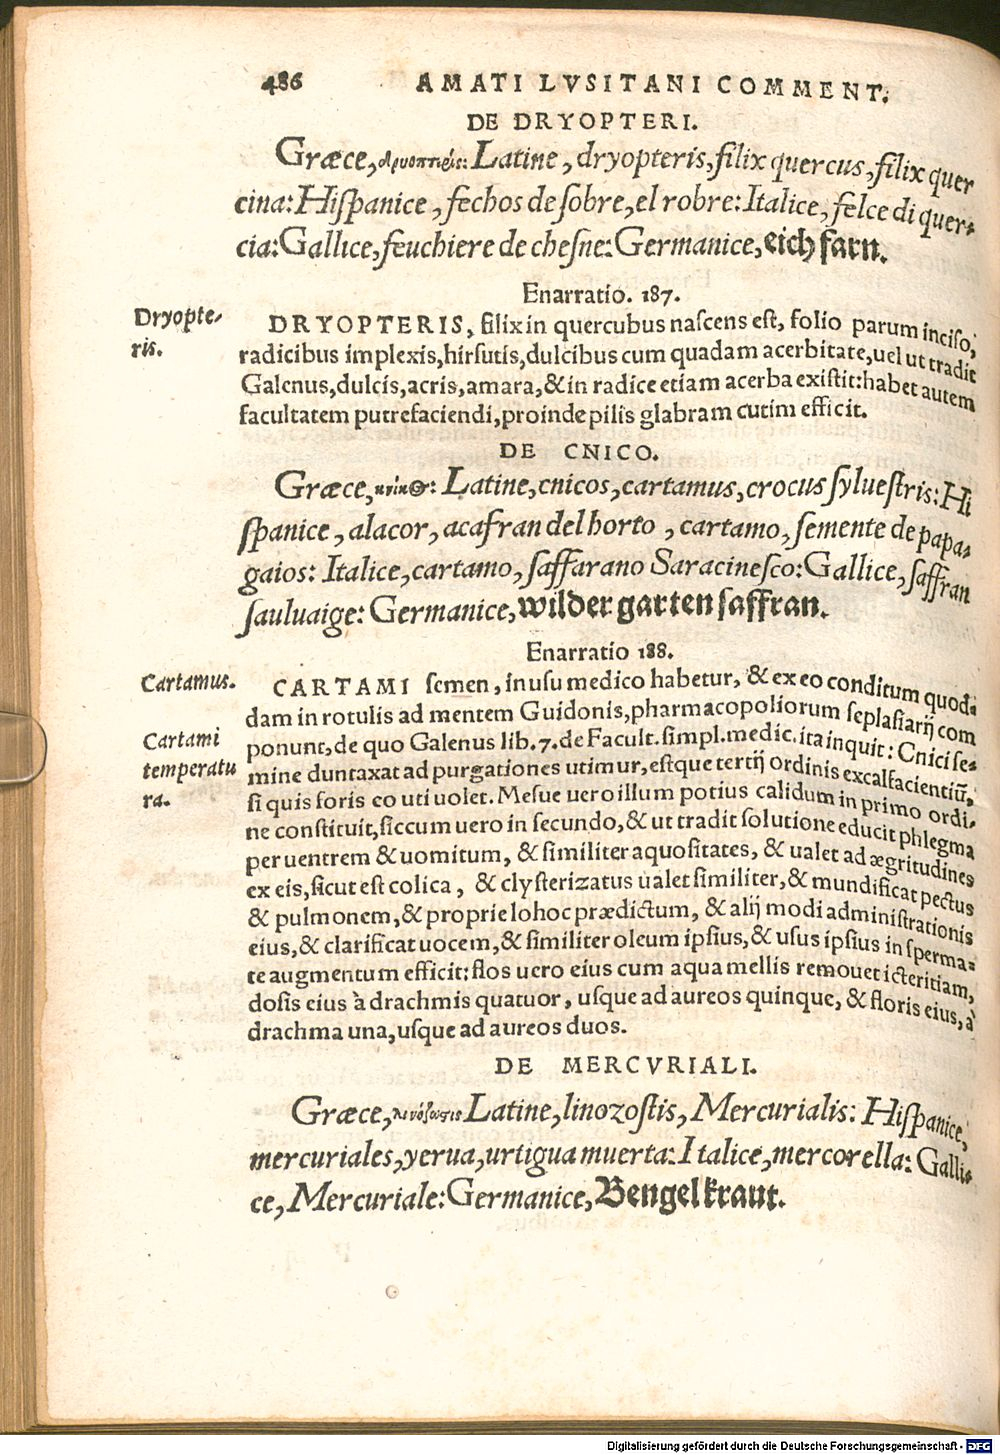 486 AMATI LVSITANI COMMENT.
DE DRYOPTERI.
Græce, δρυοπτερίς: Latine, dryopteris, filix quercus, filix quer
cina: Hiſpanice, fechos de ſobre, el robre: Italice, felce di quer-
cia: Gallice, feuchiere de cheſne: Germanice, eich farn.
Enarratio. 187.
Dryopte-
ris.
DRYOPTERIS, filix in quercubus naſcens eſt, folio parum inciſo,
radicibus implexis, hirſutis, dulcibus cum quadam acerbitate, uel ut tradit
Galenus, dulcis, acris, amara, & in radice etiam acerba exiſtit: habet autem
facultatem putrefaciendi, proinde pilis glabram cutim efficit.
DE CNICO.
Græce, κνίκος: Latine, cnicos, cartamus, crocus ſylueſtris: Hi
ſpanice, alacor, acafran del horto, cartamo, ſemente de papa-
gaios: Italice, cartamo, ſaffarano Saracineſco: Gallice, ſaffran
ſauluaige: Germanice, wilder garten ſaffran.
Enarratio 188.
Cartamus.
Cartami
temperatu
ra.
CARTAMI ſemen, in uſu medico habetur, & ex eo conditum quod-
dam in rotulis ad mentem Guidonis, pharmacopoliorum ſeplaſiarij com
ponunt, de quo Galenus lib. 7. de Facult. ſimpl. medic. ita inquit: Cnici ſe-
mine duntaxat ad purgationes utimur, eſtque tertij ordinis excalfacientiũ,
ſi quis foris eo uti uolet. Meſue uero illum potius calidum in primo ordi-
ne conſtituit, ſiccum uero in ſecundo, & ut tradit ſolutione educit phlegma
per uentrem & uomitum, & ſimiliter aquoſitates, & ualet ad ægritudines
ex eis, ſicut eſt colica, & clyſterizatus ualet ſimiliter, & mundificat pectus
& pulmonem, & proprie lohoc prædictum, & alij modi adminiſtrationis
eius, & clarificat uocem, & ſimiliter oleum ipſius, & uſus ipſius in ſperma-
te augmentum efficit: flos uero eius cum aqua mellis remouet icteritiam,
doſis eius à drachmis quatuor, uſque ad aureos quinque, & floris eius, à
drachma una, uſque ad aureos duos.
DE MERCVRIALI.
Græce, λινόζωστις Latine, linozoſtis, Mercurialis: Hiſpanice,
mercuriales, yerua, urtigua muerta: Italice, mercorella: Galli-
ce, Mercuriale: Germanice, Bengelkraut.
Digitalisierung gefördert durch die Deutsche Forschungsgemeinschaft - DFG